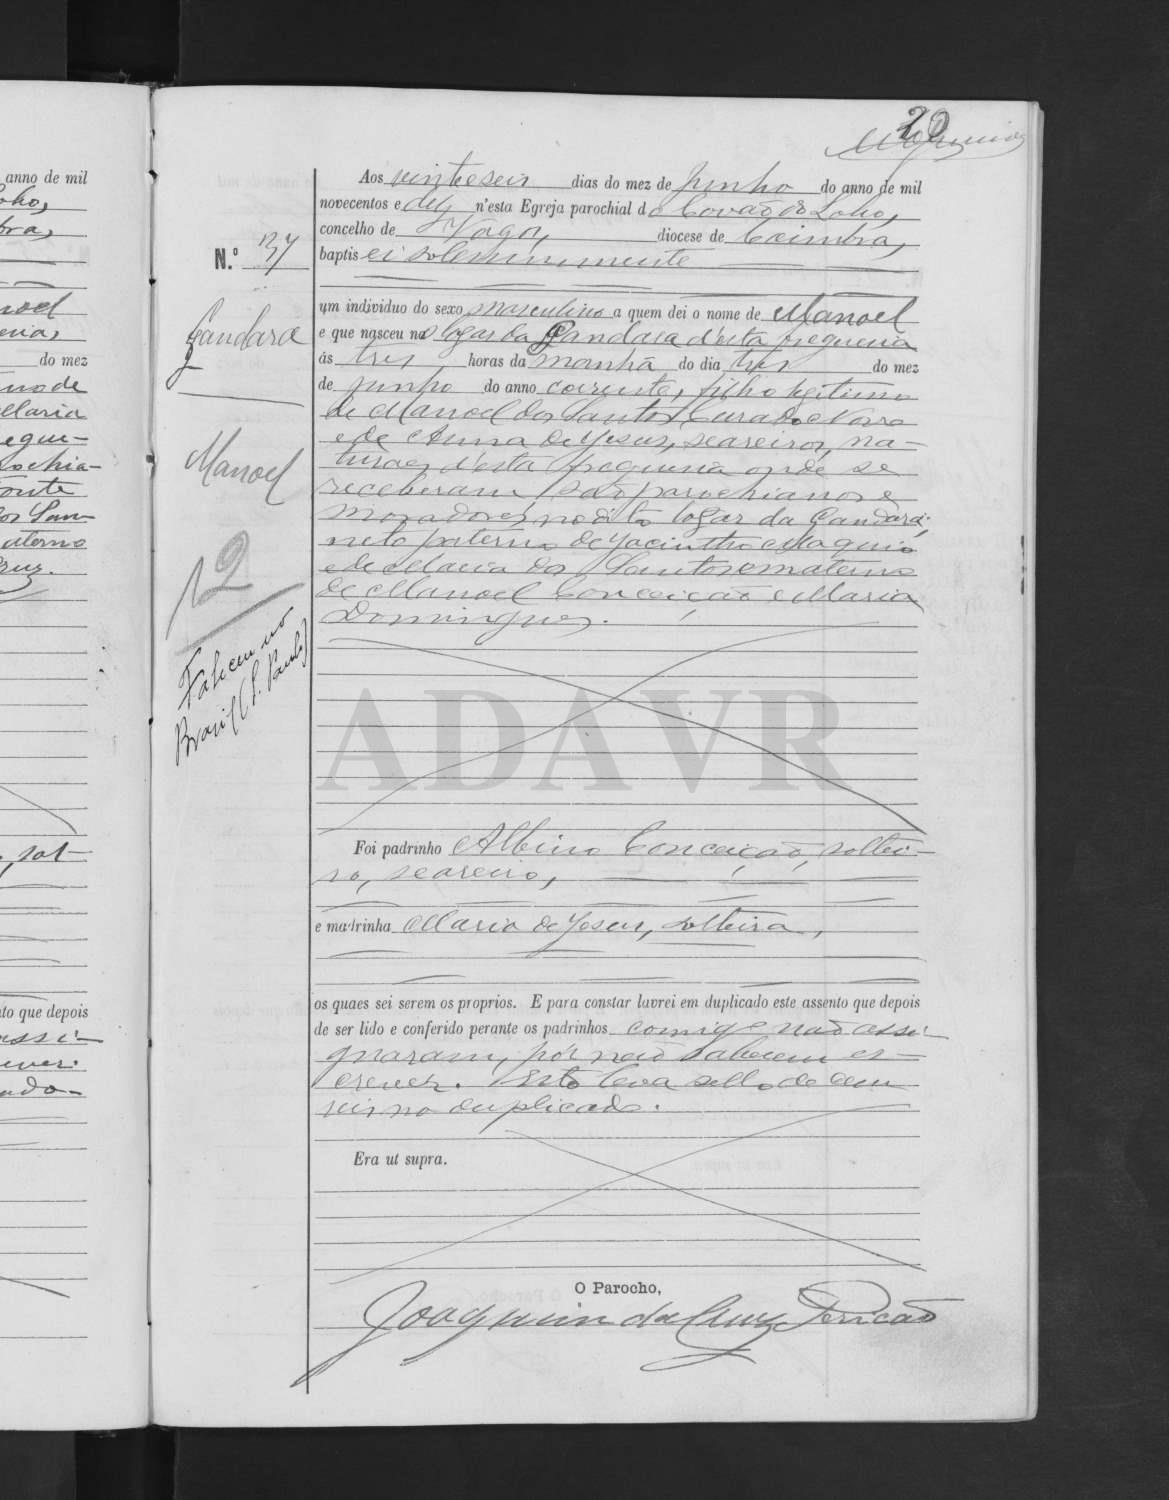 20
Aos vinte e seis dias do mez de Junho do anno de mil
novecentos e dez n'esta Egreja parochial do Covão do Lobo,
concelho de Vagos, diocese de Coimbra,
N.º 37
baptisei solemnemente
um individuo do sexo masculino a quem dei o nome de Manoel
Gandara
e que nasceu no logar da Gandara d'esta freguesia
ás tres horas da manhã do dia tres do mez
de Junho do anno corrente, filho legitimo
de Manoel dos Santos Curado Novo
e de Anna de Jesus, seareiros, na-
Manoel
turaes d'esta freguesia onde se
receberam, são parochianos e
moradores no dito logar da Gandara;
neto paterno de Jacintho
e de Maria dos Santos e materno
12
de Manoel Conceição e Maria
Domingues.
Faleceu no
Brasil (S. Paulo)
ADAVR
Foi padrinho Albino Conceição, soltei-
ro, seareiro,
e madrinha Maria de Jesus, solteira,
os quaes sei serem os proprios. E para constar lavrei em duplicado este assento que depois
de ser lido e conferido perante os padrinhos comigo não assi-
gnaram, por não saberem es-
crever. Este leva sello de cem
reis no duplicado.
Era ut supra.
O Parocho,
Joaquim da Cruz Pericão
anno de mil
do mez
Maria
to que depois